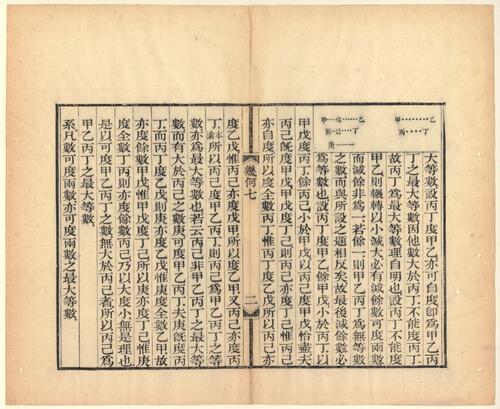 甲………乙
丙……丁
甲…戊……乙
丙…己…丁
庚……
大等數設丙丁度甲乙亦可自度卽爲甲乙丙
丁之最大等數因他數大於丙丁不能度丙丁
故丙丁爲最大等數理自明也設丙丁不能度
甲乙則輾轉以小減大必有減餘數可度兩數
而減餘非爲一若餘一則甲乙丙丁爲無等數
之數而與所設之題相反矣故最後減餘數必
爲等數也設丙丁度甲乙餘甲戊小於丙丁以
甲戊度丙丁餘丙己小於甲戊以丙己度甲戊恰盡夫
丙己旣度甲戊甲戊度丁己則丙己亦度丁己惟丙己
亦自度所以度全數丙丁惟丙丁度乙戊所以丙己亦
幾何七
二
度乙戊惟丙己亦度戊甲所以度乙甲又丙己亦度丙
丁本論所以丙己度甲乙丙丁則丙己爲甲乙丙丁之等
數亦爲最大等數也若云丙己非甲乙丙丁之最大等
數而有大於丙己之數庚可度甲乙丙丁夫庚旣度丙
丁而丙丁度乙戊則庚亦度乙戊惟庚度全數乙甲故
亦度餘數甲戊惟甲戊度丁己所以庚亦度丁己惟庚
度全數丁丙則亦度餘數丙己乃以大度小無是理也
是以可度甲乙丙丁之數無大於丙己者所以丙己爲
甲乙丙丁之最大等數
系凡數可度兩數亦可度兩數之最大等數